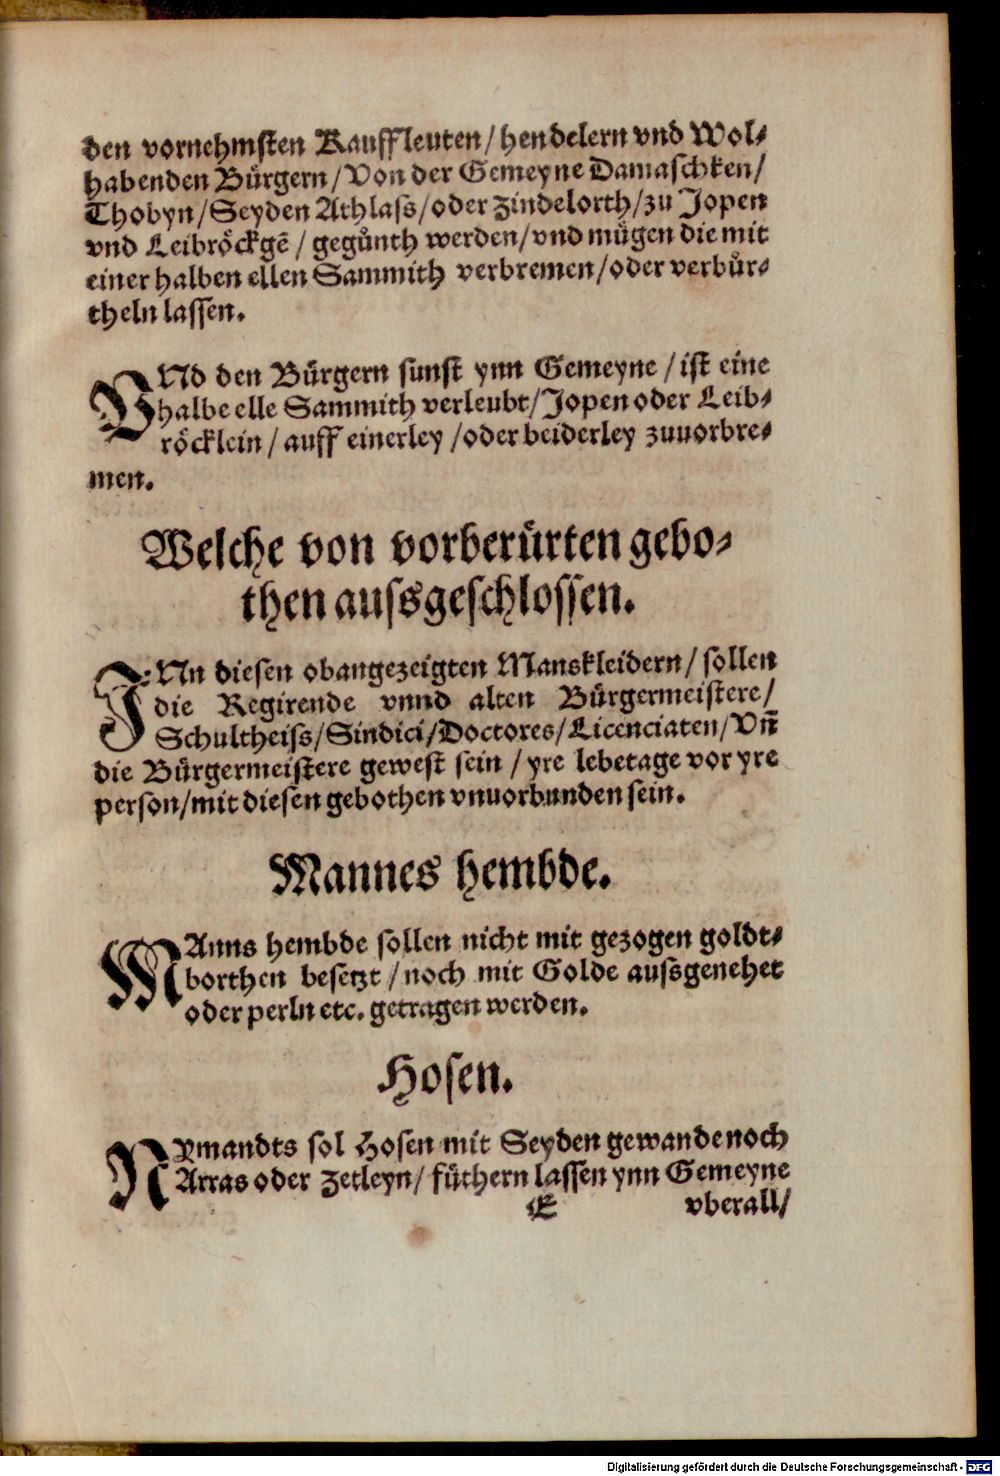 den vornehmsten Kauffleuten/ hendelern vnd Wol-
habenden Bürgern/ Von der Gemeyne Damaschken/
Thobyn/ Seyden Athlass/ oder Zindelorth/ zu Jopen
vnd Leibröckgē/ gegůnth werden/ vnd mügen die mit
einer halben ellen Sammith verbremen/ oder verbür-
theln lassen.
VNd den Bürgern sunst ynn Gemeyne/ ist eine
halbe elle Sammith verleubt/ Jopen oder Leib-
röcklein/ auff einerley/ oder beiderley zuuorbre-
men.
Welche von vorberürten gebo-
then aussgeschlossen.
INn diesen obangezeigten Manskleidern/ sollen
die Regirende vnnd alten Bürgermeistere/
Schultheiss/ Sindici/ Doctores/ Licenciaten/ Vn̄
die Bürgermeistere gewest sein/ yre lebetage vor yre
person/ mit diesen gebothen vnuorbunden sein.
Mannes hembde.
MAnns hembde sollen nicht mit gezogen goldt-
borthen besetzt/ noch mit Golde aussgenehet
oder perln etc. getragen werden.
Hosen.
NYmandts sol Hosen mit Seyden gewande noch
Arras oder Zetleyn/ füthern lassen ynn Gemeyne
E vberall/
Digitalisierung gefördert durch die Deutsche Forschungsgemeinschaft - DFG